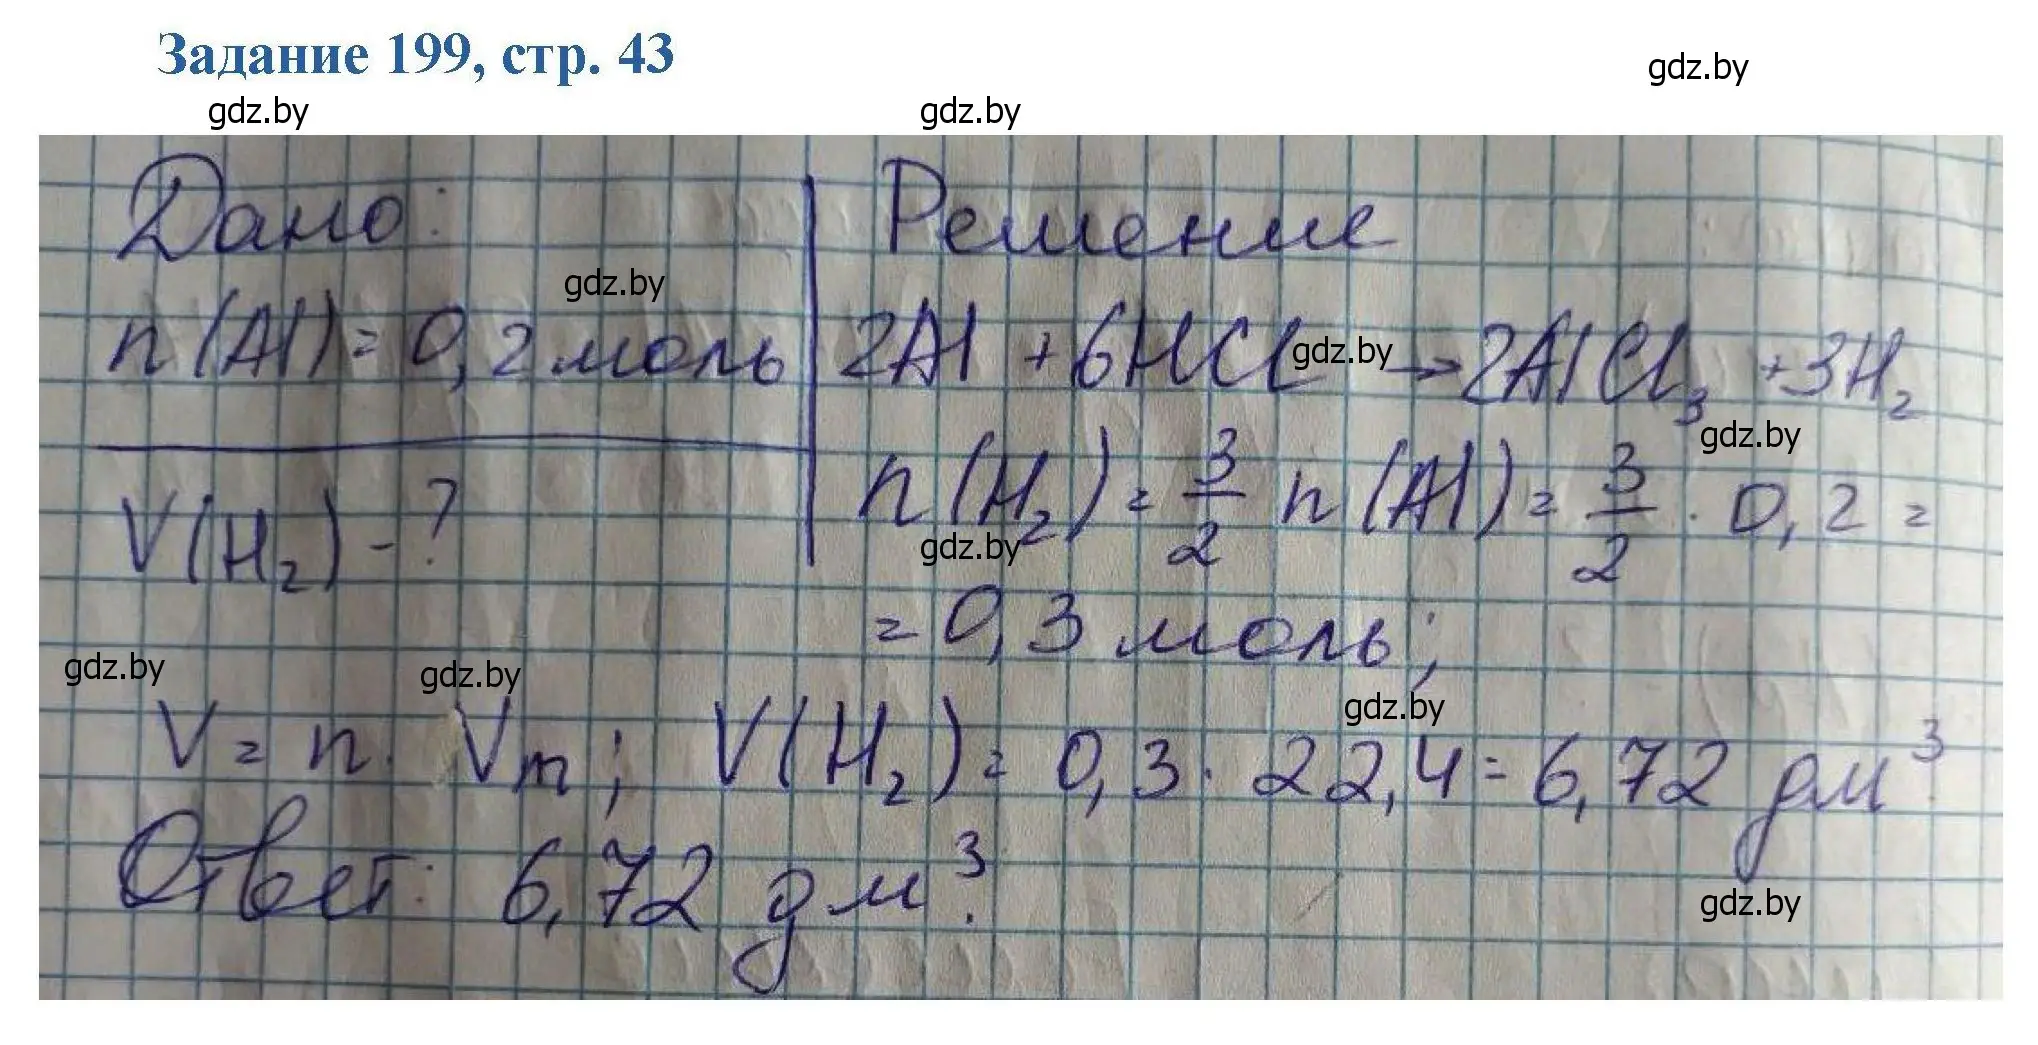 Задание 199, стр. 43
gdz.by
gdz.by
gdz.by
Дано:
Решение
gdz.by
n(Al) = 0,2 моль
2Al + 6HCl → 2AlCl₃ + 3H₂
gdz.by
gdz.by
V(H₂) - ?
n(H₂) = 3/2 n(Al) = 3/2 · 0,2 =
gdz.by
= 0,3 моль;
gdz.by
gdz.by
gdz.by
V = n · Vm; V(H₂) = 0,3 · 22,4 = 6,72 дм³
Ответ: 6,72 дм³.
gdz.by